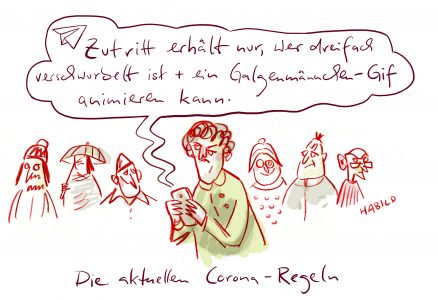 Zutritt erhält nur, wer dreifach
verschwurbelt ist + ein Galgenmännchen-Gif
animieren kann.
HABILD
Die aktuellen Corona-Regeln